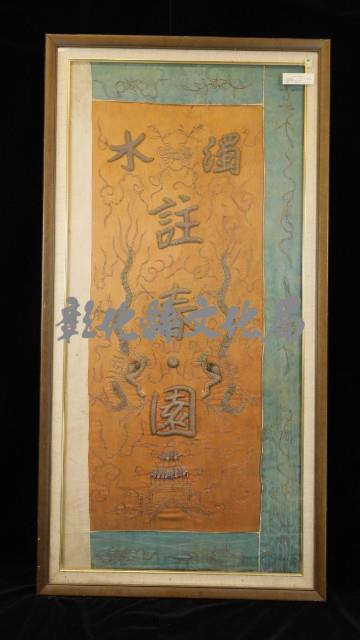 濁水
註春園
彰化縣文化局